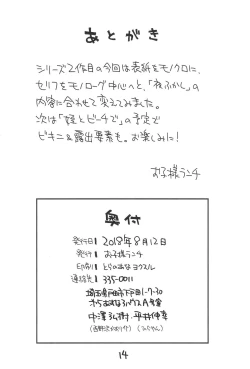 あとがき
シリーズ2作目の今回は表紙をモノクロに、
セリフをモノローグ中心へと、「夜ふかし」の
内容に合わせて変えてみました。
次は「とビーチで」の予定で
ビキニ&露出要素も。お楽しみに!
お子様ランチ
奥付
発行日 2018年8月12日
発行 お子様ランチ
印刷 とらのあなヨクスル
連絡先 335-0011
埼玉県戸田市下戸田1-7-30
A号室
14